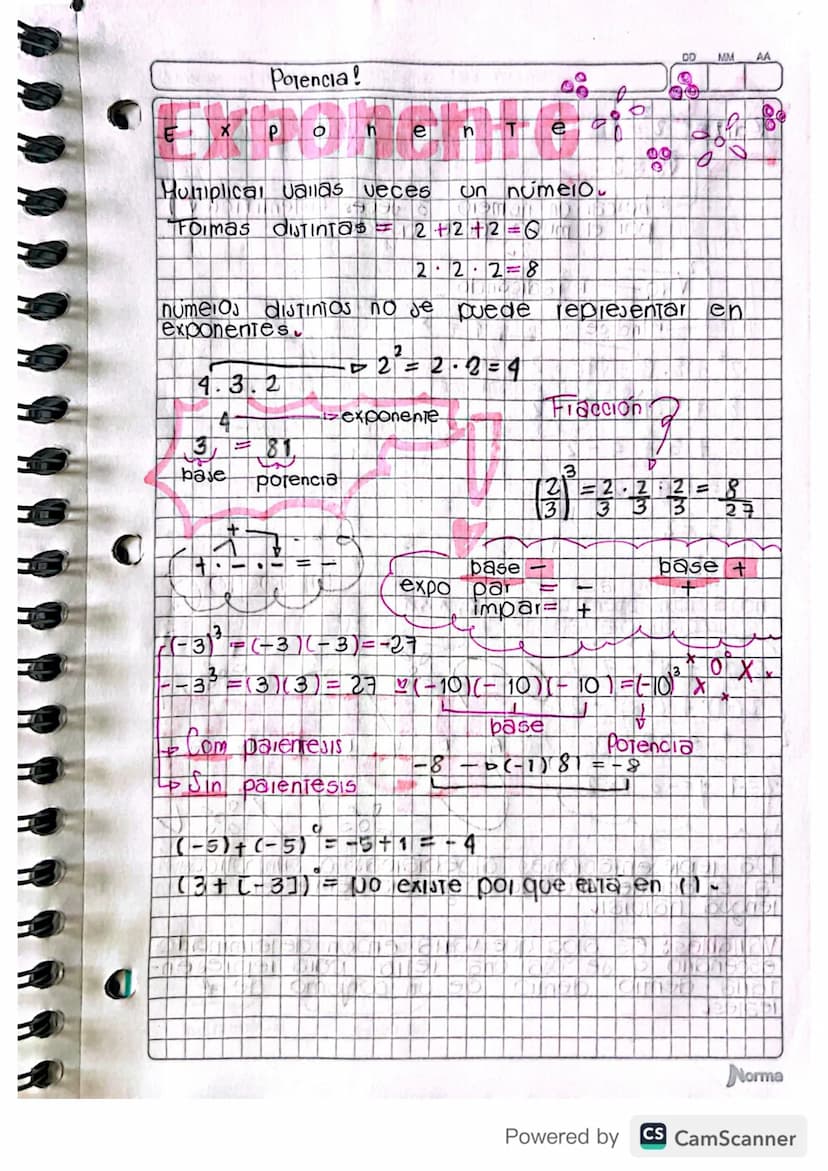 DD MM AA
Potencia!
Exponente
Multiplicar varias veces un número.
Formas distintas = 2+2+2=6
2·2·2=8
números distintos no se puede representar en
exponentes.
4.3.2 → 2² = 2·2=4
3⁴ = 81
exponente
base potencia
Fracción?
(2/3)³ = 2/3 · 2/3 · 2/3 = 8/27
+
+ · − · − = −
base − base +
expo par = − +
impar= +
(-3)³ = (-3)(-3)= -27
--3³ = (3)(3) = 27
(-10)(-10)(-10)=(-10)³
x 0° X x
X x
base
Potencia
Com parentesis
-8 → (-1)(8) = -8
Sin parentesis
(-5)+(-5)⁰ = -5+1 = -4
(3+[-3])° = No existe por que está en ().
Norma
Powered by CS CamScanner